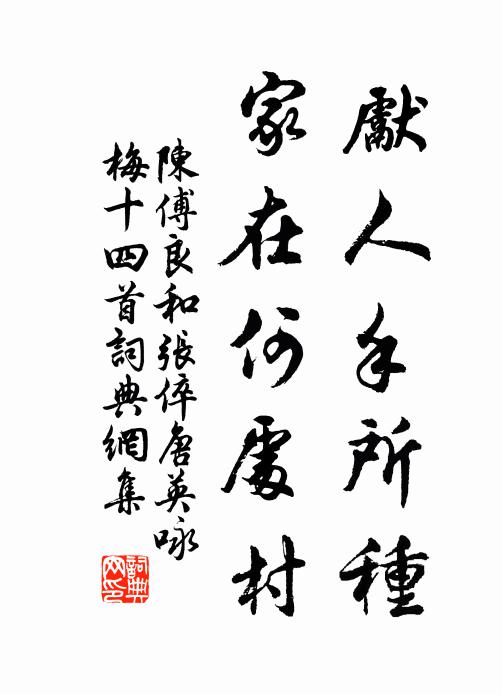 獻人手所種
家在何處村
陳傅良和張倅唐英咏
梅十四首詞典網集
詞典
网印